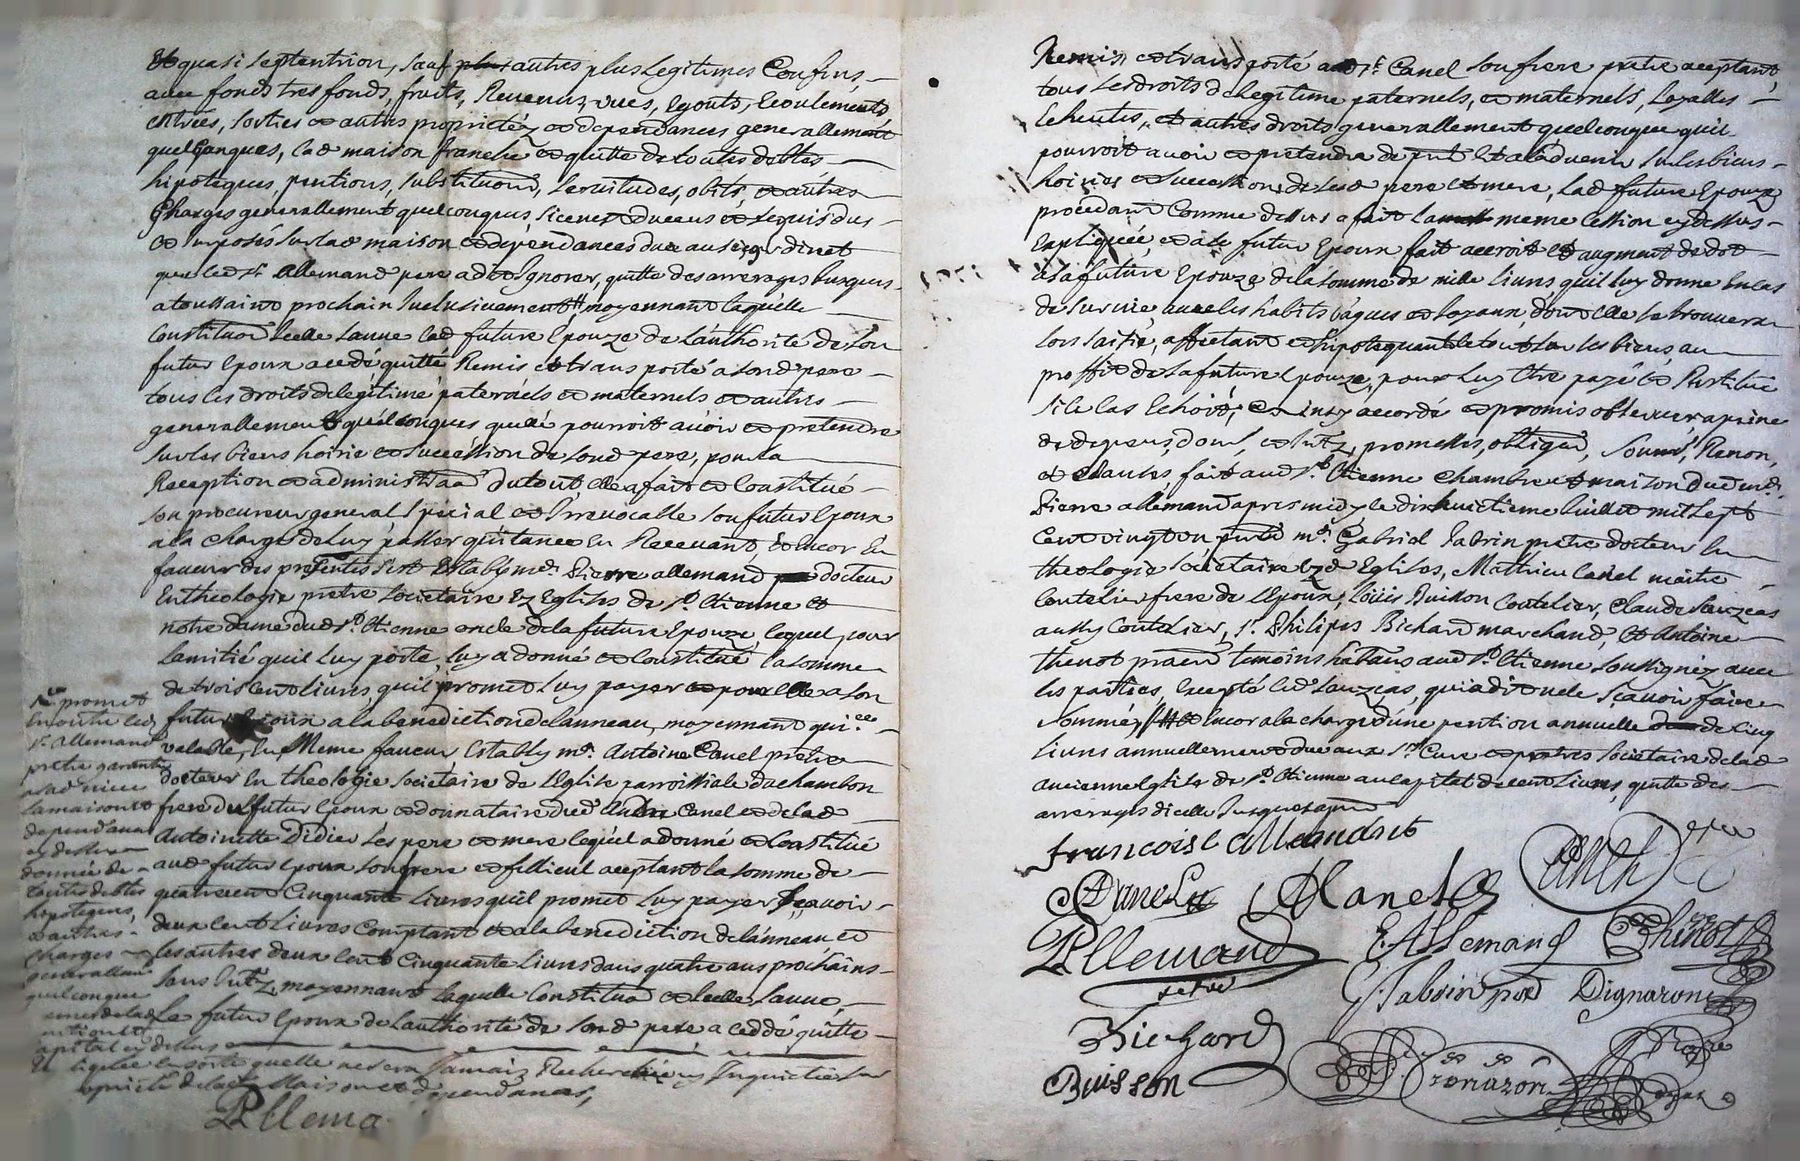 Et quasi septentrion, sauf autres plus legitimes Confins,
avec fonds tresfonds, fruits, Revenuz, vues, Egouts, Ecoulements
entrées, sorties et autres proprietéz et dependances generallement
quelConques, lad maison franche et quitte de toutes debtes
hipoteques, pentions, substitutions, servitudes, obits, et autres
Charges generallement quelconques
et imposés sur lad maison et dependances
que led Sr Allemand pere a dit Ignorer, quitte des arrerages jusques
a toussaint prochain Inclusivement moyennant laquelle
Constituon Icelle sauve lad future Epouze de l'authorité de son
futur Epoux a cedé quitté Remis et transporté a sond pere
tous les droits de legitime paternels et maternels et autres
generallement quelconques quelle pourroit avoir et pretendre
sur les biens hoirie et succession de sond pere, pour la
Reception et administraon du tout, elle a fait et Constitué
son procureur general special et Irrevocable son futur Epoux
a la charge de luy passer quitance En Recevant, Et Encor En
faveur des presentes s'est Estably mre Pierre allemand docteur
En theologie pretre societaire Ez Eglises de St Etienne et
notre dame dud St Etienne oncle de la future Epouze lequel, pour
Lamitié quil luy porte luy a donné et Constitué la somme
de trois cent livres, quil promet luy payer et pour elle a son
futur Epoux a la benediction de lanneau, moyennant quittce
valable, En Meme faveur, Estably mre Antoine Canel pretre
docteur En theologie societaire de l'Eglise parroissiale du chambon
frere du futur Epoux et donnataire dud Canel et de lad
Antoinette Didier ses pere et mere lequel a donné et Constitué
aud futur Epoux son frere et filleul aceptant la somme de
quatre cent Cinquante livres quil promet luy payer sçavoir
deux cent livres Comptant et a la benediction de lanneau et
les autres deux cent Cinquante livres dans quatre ans prochains
sans Intz, moyennant laquelle Constituon et Icelle sauve
Le futur Epoux de lauthorité de sond pere a ceddé quitté
promet
Sr Allemand
pretre garantir
a sad niece
la maison et
dependances
cy dessus
donnée de
toutes debtes
hipoteques,
et autres
charges
generallem
quelconque
capital cy dessus
en sorte quelle ne sera Jamais Recherchée ny Inquietée
de lad Maison et dependances,
PAllema
Remis et transporté aud Sr Canel son frere pretre aceptant
tous les droits de legitime paternels, et maternels, loyalles
Echeutes, et autres droits generallement quelconque quil
pourroit avoir et pretendre de pnt Et a ladvenir sur les biens
hoiries et succession de sesd pere et mere, Lad future Epouze
procedant Comme dessus a fait la meme Cession cy dessus
Expliquée, et a led futur Epoux fait accroit Et augment de dot
a sa future Epouze de la somme de mille livres quil luy donne En cas
de survie, avec les habits bagues et Joyaux, dont elle se trouvera
lors saisie, affectant et hipotequant le tout sur les biens, au
proffit de la future Epouze, pour luy Etre payé et Restitué
si le cas Echoit, accordé et promis observer a peine
de depens, dom, et Intz, promesses, obligaon, Soumon, Renon,
et clauses, fait aud St Etienne chambre et maison dud mre
Pierre allemand apres midy le dixhuictieme Juillet mil sept
Cent vingt un pnts mre Gabriel Fabrin pretre docteur En
theologie societaire ezd Eglises, Mathieu Canel maitre
Coutelier frere de lEpoux, Louis Buisson Coutelier, Claude Souzeas
aussy Coutelier, Sr Philipes Richard marchand, Et Antoine
thenot praen temoins habtans aud St Etienne soussignez avec
les parties, Excepté led Souzeas, qui a dit ne le sçavoir faire
Sommé, Et Encor a la charge d'une pention annuelle de Cinq
livres annuellement due aux Srs Curé et pretres societaire de lad
ancienne Eglise de St Etienne au capital de cent livres, quitte des
arrerages dicelle Jusques a pnt
francoise Allemand
Canel
PAllemand
pretre
EAllemand
Thenot
G. Fabrin ptre
Dignaron
Richard
Buisson
Cronazon